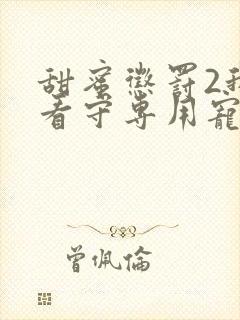 甜蜜懲罰2我
看守専用寵
曾佩倫